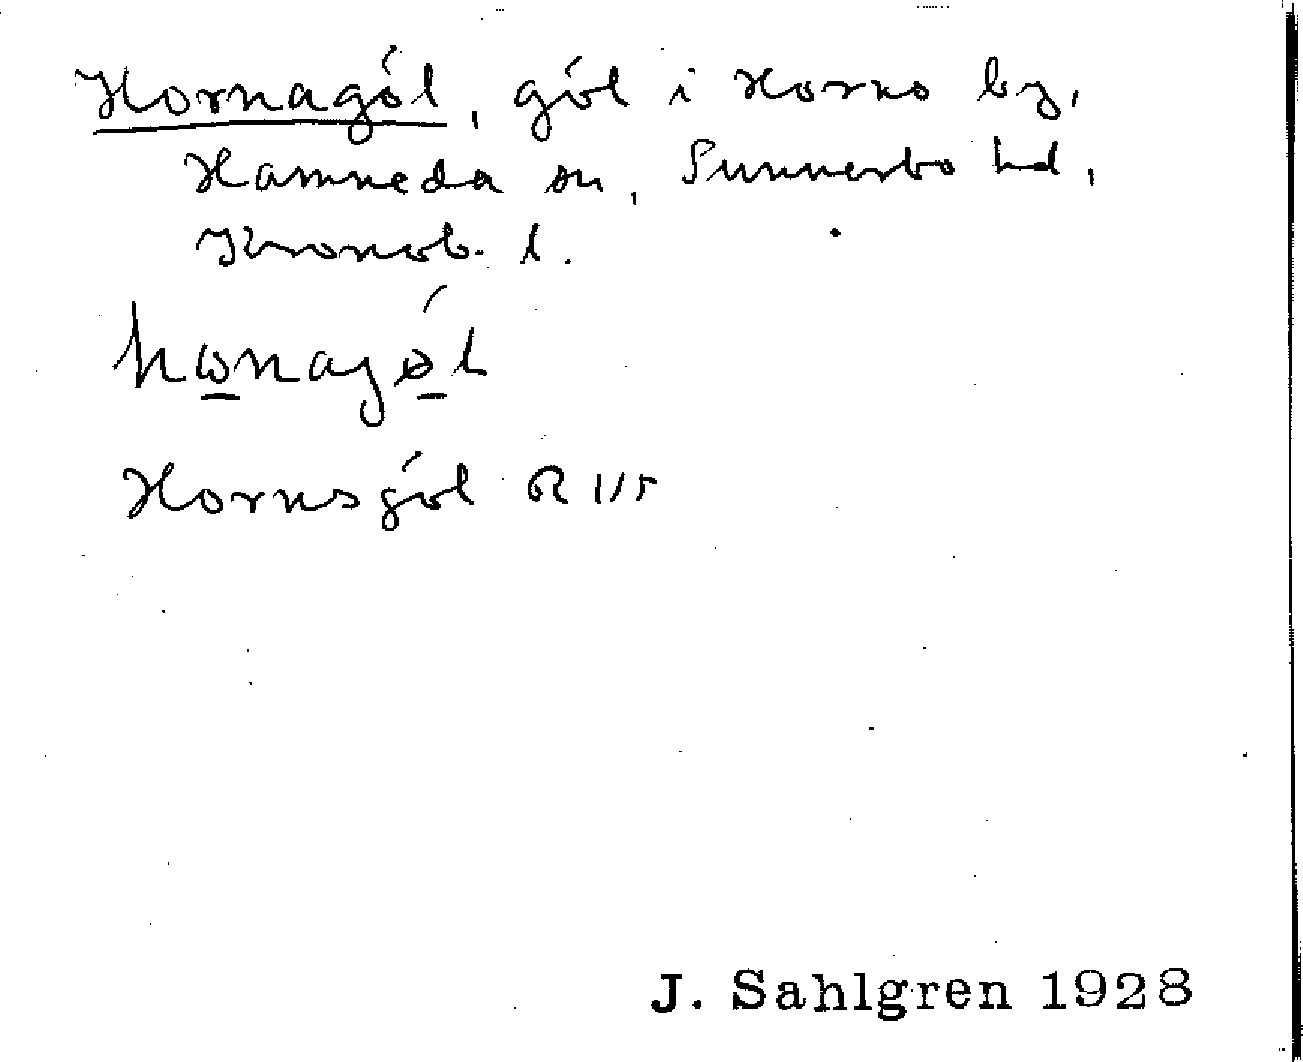 Hornagól, gól i Horns by,
Hamneda sn, Sunnerbo hd,
Kronob. l.
Hornsgól R 115
J. Sahlgren 1928